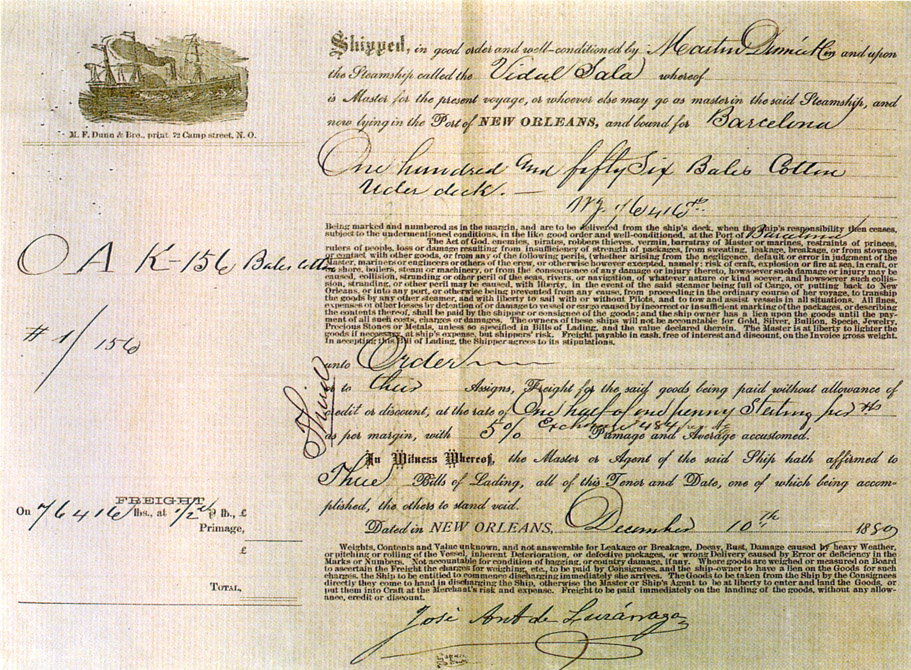 Shipped, in good order and well-conditioned by Martin and upon
the Steamship called the Vidal Sala whereof
is Master for the present voyage, or whoever else may go as master in the said Steamship, and
now lying in the Port of NEW ORLEANS, and bound for Barcelona
M. F. Dunn & Bro., print 72 Camp street, N. O.
One hundred and fifty Six Bales Cotton
Under deck. —
Wg. 76416 lbs.
Being marked and numbered as in the margin, and are to be delivered from the ship's deck, when the ship's responsibility then ceases,
subject to the undermentioned conditions, in the like good order and well-conditioned, at the Port of Barcelona
The Act of God, enemies, pirates, robbers thieves, vermin, barratray of Master or marines, restraints of princes,
rulers of people, loss or damage resulting from insufficiency of strength of packages, from sweating, leakage, breakage, or from stowage
or contact with other goods, or from any of the following perils, whether arising from the negligence, default or error in judgment of the
Master, mariners or engineers or others of the crew, or otherwise howsoever excepted, namely: risk of craft, explosion or fire at sea, in craft, or
on shore, boilers, steam or machinery, or from the consequence of any damage or injury thereto, howsoever such damage or injury may be
caused, collision, stranding or other peril of the seas, rivers, or navigation, of whatever nature or kind soever, and howsoever such collis-
sion, stranding, or other peril may be caused, with liberty, in the event of the said steamer being full of Cargo, or putting back to New
Orleans, or into any port, or otherwise being prevented from any cause, from proceeding in the ordinary course of her voyage, to tranship
the goods by any other steamer, and with liberty to sail with or without Pilots, and to tow and assist vessels in all situations. All fines,
expenses or other losses by detention of or damage to vessel or cargo caused by incorrect or insufficient marking of the packages, or describing
the contents thereof, shall be paid by the shipper or consignee of the goods; and the ship owner has a lien upon the goods until the pay-
ment of all such costs, charges or damages. The owners of these ships will not be accountable for Gold, Silver, Bullion, Specie, Jewelry,
Precious Stones or Metals, unless so specified in Bills of Lading, and the value declared therein. The Master is at liberty to lighter the
goods if necessary, at ship's expense, but shippers' risk. Freight payable in cash, free of interest and discount, on the Invoice gross weight.
In accepting this Bill of Lading, the Shipper agrees to its stipulations.
O A K-156 Bales Cotton
# 1/156
unto Order
or to their Assigns, Freight for the said goods being paid without allowance of
credit or discount, at the rate of One half of one penny Sterling per lb
as per margin, with 5% Exchange Primage and Average accustomed.
Third
In Witness Whereof, the Master or Agent of the said Ship hath affirmed to
Three Bills of Lading, all of this Tenor and Date, one of which being accom-
plished, the others to stand void.
Dated in NEW ORLEANS, December 10th 1880
FREIGHT
On 76416 lbs., at 1/2d ℔ lb., £
Primage,
£
TOTAL,
Weights, Contents and Value unknown, and not answerable for Leakage or Breakage, Decay, Rust, Damage caused by heavy Weather,
or pitching or rolling of the Vessel, inherent Deterioration, or defective packages, or wrong Delivery caused by Error or Deficiency in the
Marks or Numbers. Not accountable for condition of bagging, or country damage, if any. Where goods are weighed or measured on Board
to ascertain the Freight the charges for weighing, etc., to be paid by Consignees, and the ship-owner to have a lien on the Goods for such
charges, the Ship to be entitled to commence discharging immediately she arrives. The Goods to be taken from the Ship by the Consignees
directly they come to hand in discharging the Ship, otherwise the Master or Ship's Agent to be at liberty to enter and land the Goods, or
put them into Craft at the Merchant's risk and expense. Freight to be paid immediately on the landing of the goods, without any allow-
ance, credit or discount.
José Ant de Luzárraga